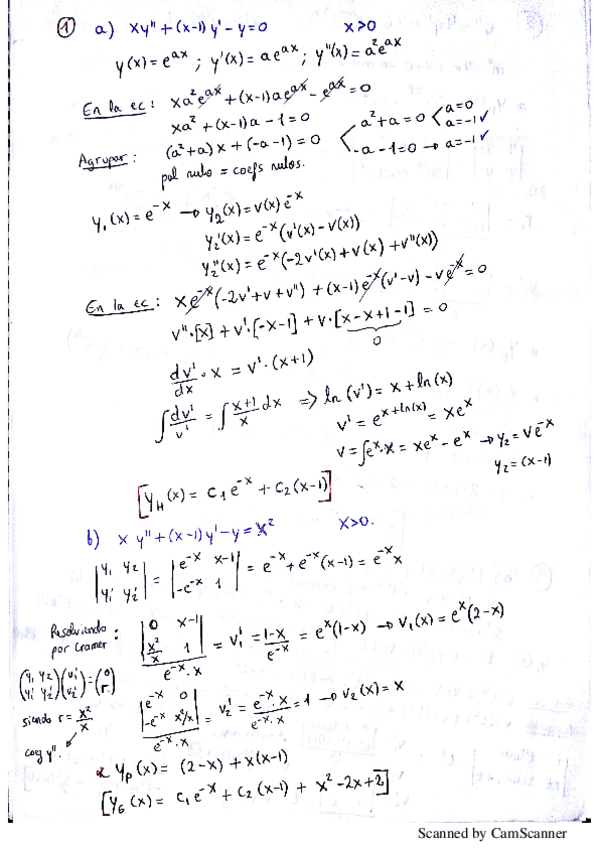 ① a) xy'' + (x-1)y' - y = 0   x>0
y(x) = e^{ax} ; y'(x) = a e^{ax} ; y''(x) = a²e^{ax}
En la ec: xa²e^{ax} + (x-1)ae^{ax} - e^{ax} = 0
xa² + (x-1)a - 1 = 0
Agrupar: (a²+a)x + (-a-1) = 0
a²+a=0
a=0
a=-1 ✓
-a-1=0 → a=-1 ✓
pol nulo = coefs nulos.
y₁(x) = e^{-x} → y₂(x) = v(x)e^{-x}
y₂'(x) = e^{-x}(v'(x) - v(x))
y₂''(x) = e^{-x}(-2v'(x) + v(x) + v''(x))
En la ec: xe^{-x}(-2v'+v+v'') + (x-1)e^{-x}(v'-v) - ve^{-x} = 0
v''·[x] + v'·[-x-1] + v·[x-x+1-1] = 0
0
dv'/dx · x = v'·(x+1)
∫dv'/v' = ∫(x+1)/x dx ⇒ ln(v') = x + ln(x)
v' = e^{x+ln(x)} = xe^x
v = ∫e^x·x = xe^x - e^x → y₂ = ve^{-x}
y₂ = (x-1)
[y_H(x) = C₁e^{-x} + C₂(x-1)]
b) x y'' + (x-1)y' - y = x²   x>0.
|y₁ y₂; y₁' y₂'| = |e^{-x} x-1; -e^{-x} 1| = e^{-x} + e^{-x}(x-1) = e^{-x}x
Resolviendo por Cramer: |0 x-1; x²/x 1| / e^{-x}·x = v₁' = (1-x)/e^{-x} = e^x(1-x) → v₁(x) = e^x(2-x)
(y₁ y₂; y₁' y₂')(v₁'; v₂') = (0; r)
siendo r = x²/x
coef y''.
|e^{-x} 0; -e^{-x} x²/x| / e^{-x}·x = v₂' = e^{-x}·x / e^{-x}·x = 1 → v₂(x) = x
y_p(x) = (2-x) + x(x-1)
[y_G(x) = C₁e^{-x} + C₂(x-1) + x²-2x+2]
Scanned by CamScanner